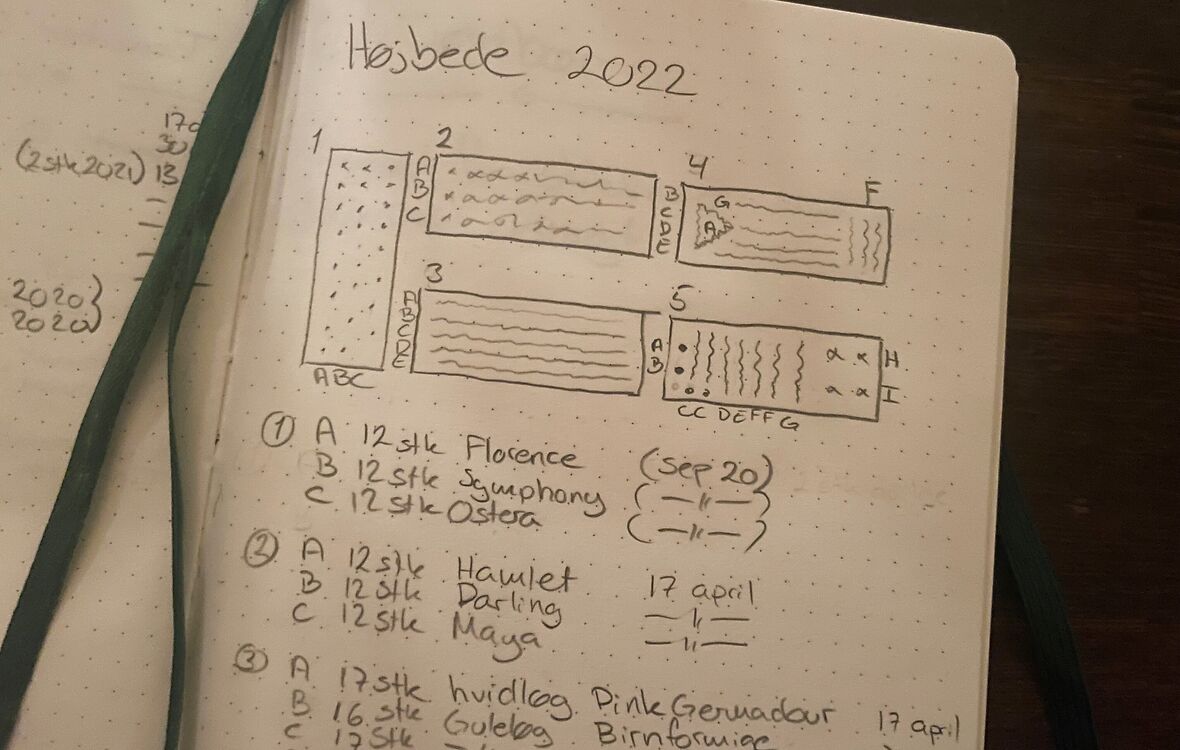 Højbede 2022
170
30
(2stk2021) 13
2020}
2020}
1
A B C
2
A
B
C
3
A
B
C
D
E
4
B
C
D
E
G
A
F
5
A
B
CC DEFFG
H
I
① A 12 stk Florence (Sep 20)
B 12 stk Symphony (—〃—)
C 12 stk Ostera (—〃—)
② A 12 stk Hamlet 17 april
B 12 stk Darling —〃—
C 12 stk Maya —〃—
③ A 17 stk hvidløg Pink Germadour 17 april
B 16 stk Guleløg Birnformige
C 17 stk